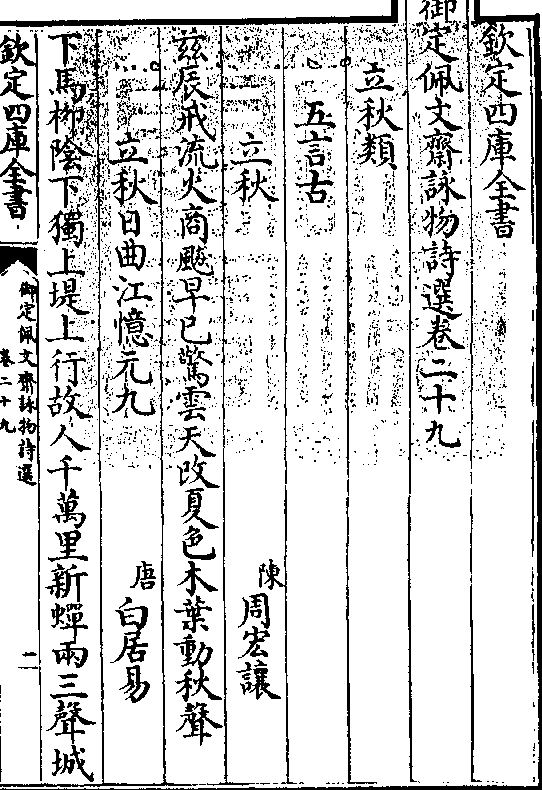 欽定四庫全書
御定佩文齋詠物詩選卷二十九
立秋類
五言古
立秋
陳 周宏讓
兹辰戒流火商飇早已驚雲天改夏色木葉動秋聲
立秋日曲江憶元九
唐 白居易
下馬栁陰下獨上堤上行故人千萬里新蟬兩三聲城
欽定四庫全書
御定佩文齋詠物詩選
卷二十九
一